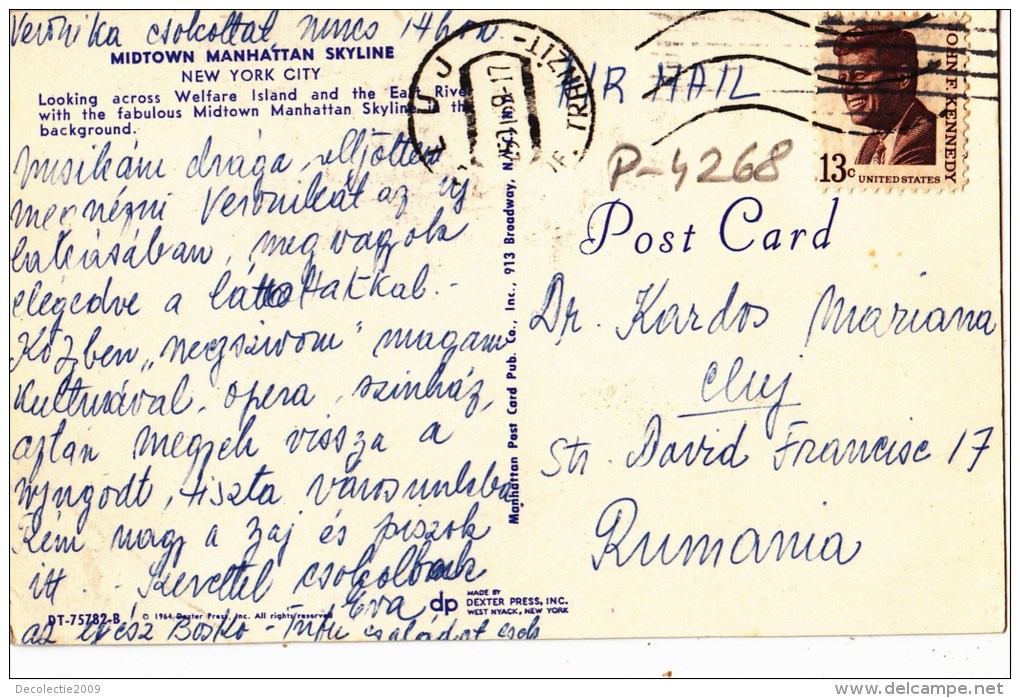 Veronika csokoltat nincs itthon.
MIDTOWN MANHATTAN SKYLINE
NEW YORK CITY
Looking across Welfare Island and the East River
with the fabulous Midtown Manhattan Skyline in the
background.
Musikám draga, elljöttem
megnézni Veronikát az új
lakásában, megvagyok
elégedve a látottakkal.-
Közben „megszivom" magam
kulturával, opera, szinház,
aztán megyek vissza a
nyugodt, tiszta városunkba
Rém nagy a zaj és piszok
itt. Szerettel csokollak
Eva
az egész családot csok
DT-75782-B
© 1964 Dexter Press, Inc. All rights reserved
dp
MADE BY
DEXTER PRESS, INC.
WEST NYACK, NEW YORK
Manhattan Post Card Pub. Co., Inc., 913 Broadway, N.Y.C.
CLUJ
AIR MAIL
P-4268
JOHN F. KENNEDY
13c UNITED STATES
Post Card
Dr. Kardos Mariana
Cluj
Str. David Francisc 17
Rumania
Decolectie2009
www.delcampe.net